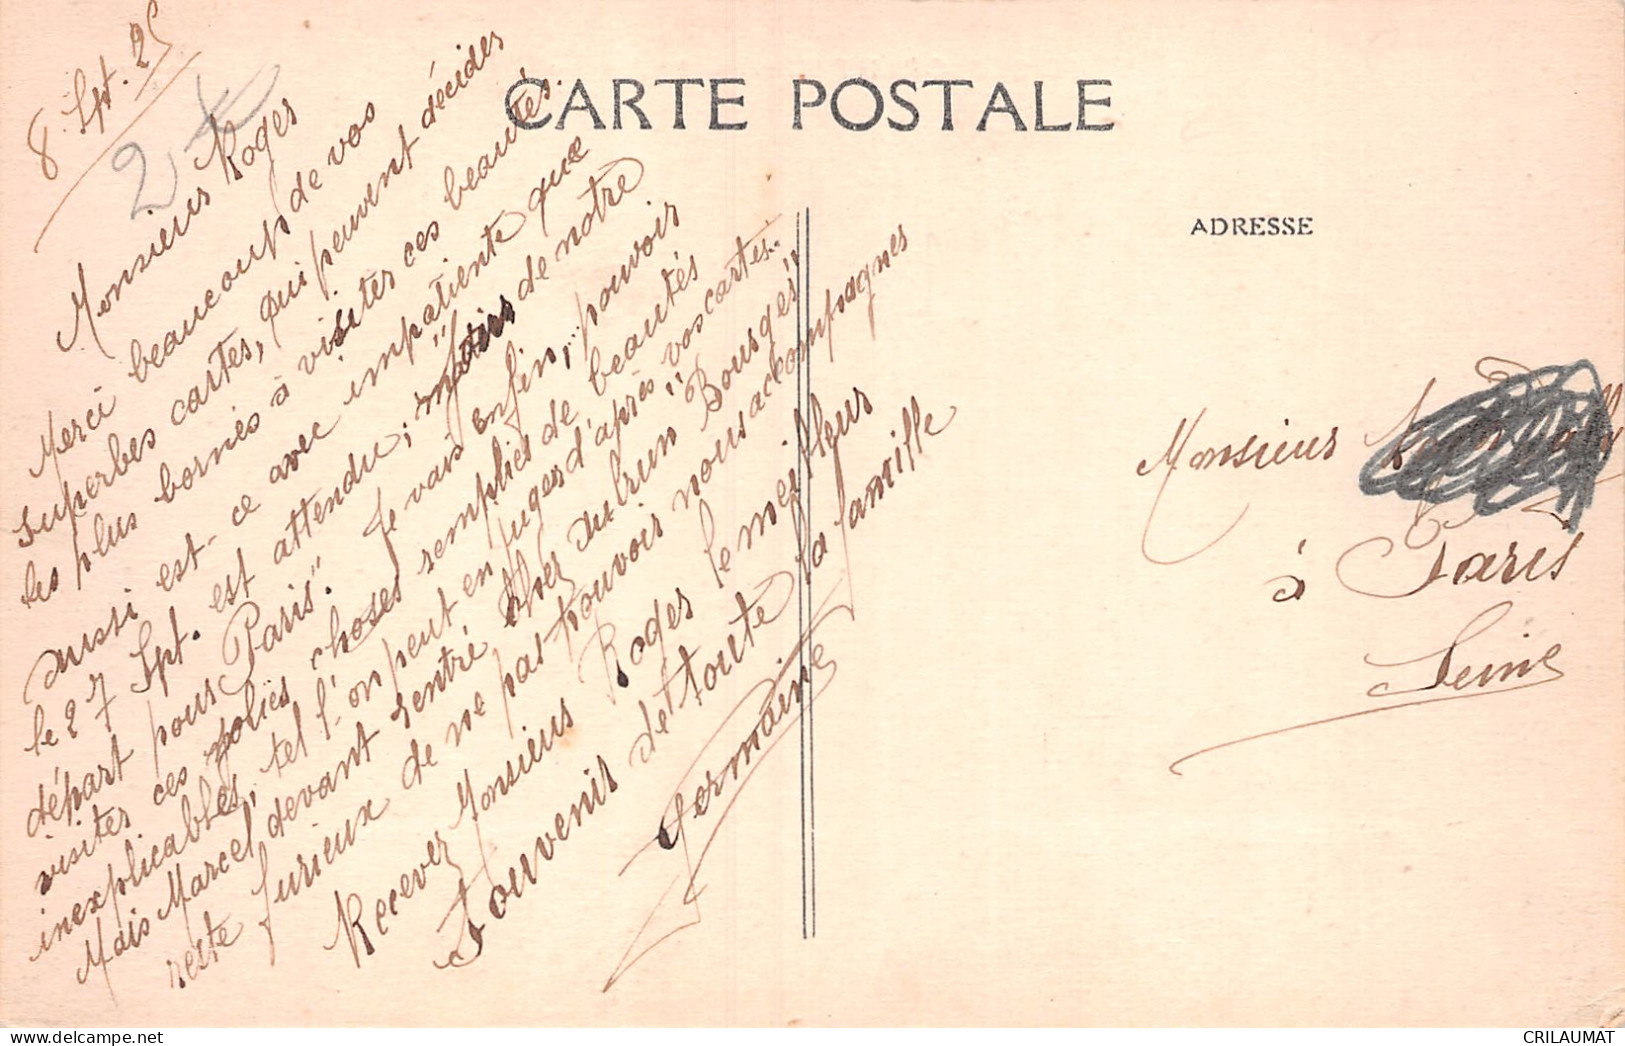 8 Spt. 25
2 €
CARTE POSTALE
Monsieur Roger
Merci beaucoup de vos
superbes cartes, qui peuvent décider
les plus bornés à visiter ces beautés.
aussi est-ce avec impatiente que
le 27 Spt. est attendu; "jour de notre
départ pour Paris". Je vais enfin, pouvoir
visiter ces jolies choses remplies de beautés
inexplicables, tel l'on peut en juger d'après vos cartes.
Mais Marcel devant rentré chez Aubrun "Bourges"
reste furieux de ne pas pouvoir nous accompagner
Recevez Monsieur Roger le meilleur
Souvenir de toute la famille
Germaine
ADRESSE
Monsieur
à Paris
Seine
CRILAUMAT